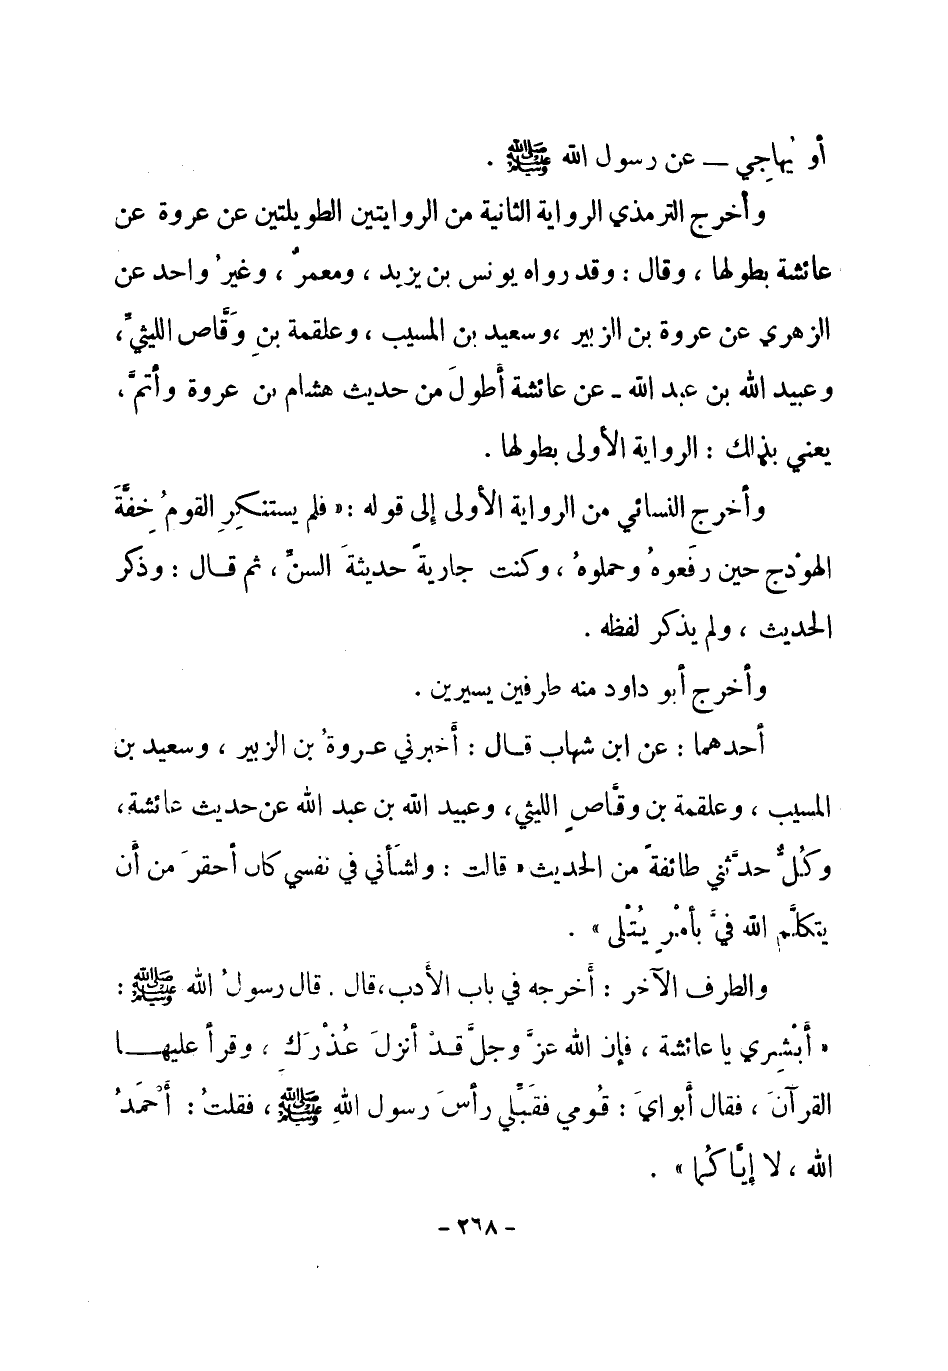 أو يُهاجِي ــ عن رسول الله ﷺ .
وأخرج الترمذي الرواية الثانية من الروايتين الطويلتين عن عروة عن
عائشة بطولها ، وقال : وقد رواه يونس بن يزيد ، ومعمرٌ ، وغيرُ واحد عن
الزهري عن عروة بن الزبير ،وسعيد بن المسيب ، وعلقمة بنِ وَقَّاص الليثيِّ،
وعبيد الله بن عبد الله ـ عن عائشة أطولَ من حديث هشام بن عروة وأتمَّ،
يعني بذلك : الرواية الأولى بطولها .
وأخرج النسائي من الرواية الأولى إلى قوله :« فلم يستنكرِ القومُ خِفَّةَ
الهوْدج حين رفَعوهُ وحملوهُ ، وكنت جاريةً حديثةَ السنِّ ، ثم قــال : وذكر
الحديث ، ولم يذكر لفظه .
وأخرج أبو داود منه طرفين يسيرين .
أحدهما : عن ابن شهاب قــال : أخبرني عـروةُ بن الزبير ، وسعيد بن
المسيب ، وعلقمة بن وقَّاصٍ الليثي، وعبيد الله بن عبد الله عن حديث عائشة،
وكُلٌّ حدَّثني طائفةً من الحديث « قالت : ولشَأني في نفسي كان أحقرَ من أن
يتكلَّم الله فيَّ بأمْرٍ يُتْلى » .
والطرف الآخر : أخرجه في باب الأدب،قال . قال رسولُ الله ﷺ :
« أبْشِري يا عائشة ، فإن الله عزَّ وجلَّ قـدْ أنزلَ عُذْرَكِ ، وقرأ عليهــا
القرآنَ ، فقال أبوايَ : قُومي فقبَّلي رأسَ رسول اللهِ ﷺ ، فقلتُ : أحْمَدُ
الله ، لا إيَّاكُما » .
- ٢٦٨ -